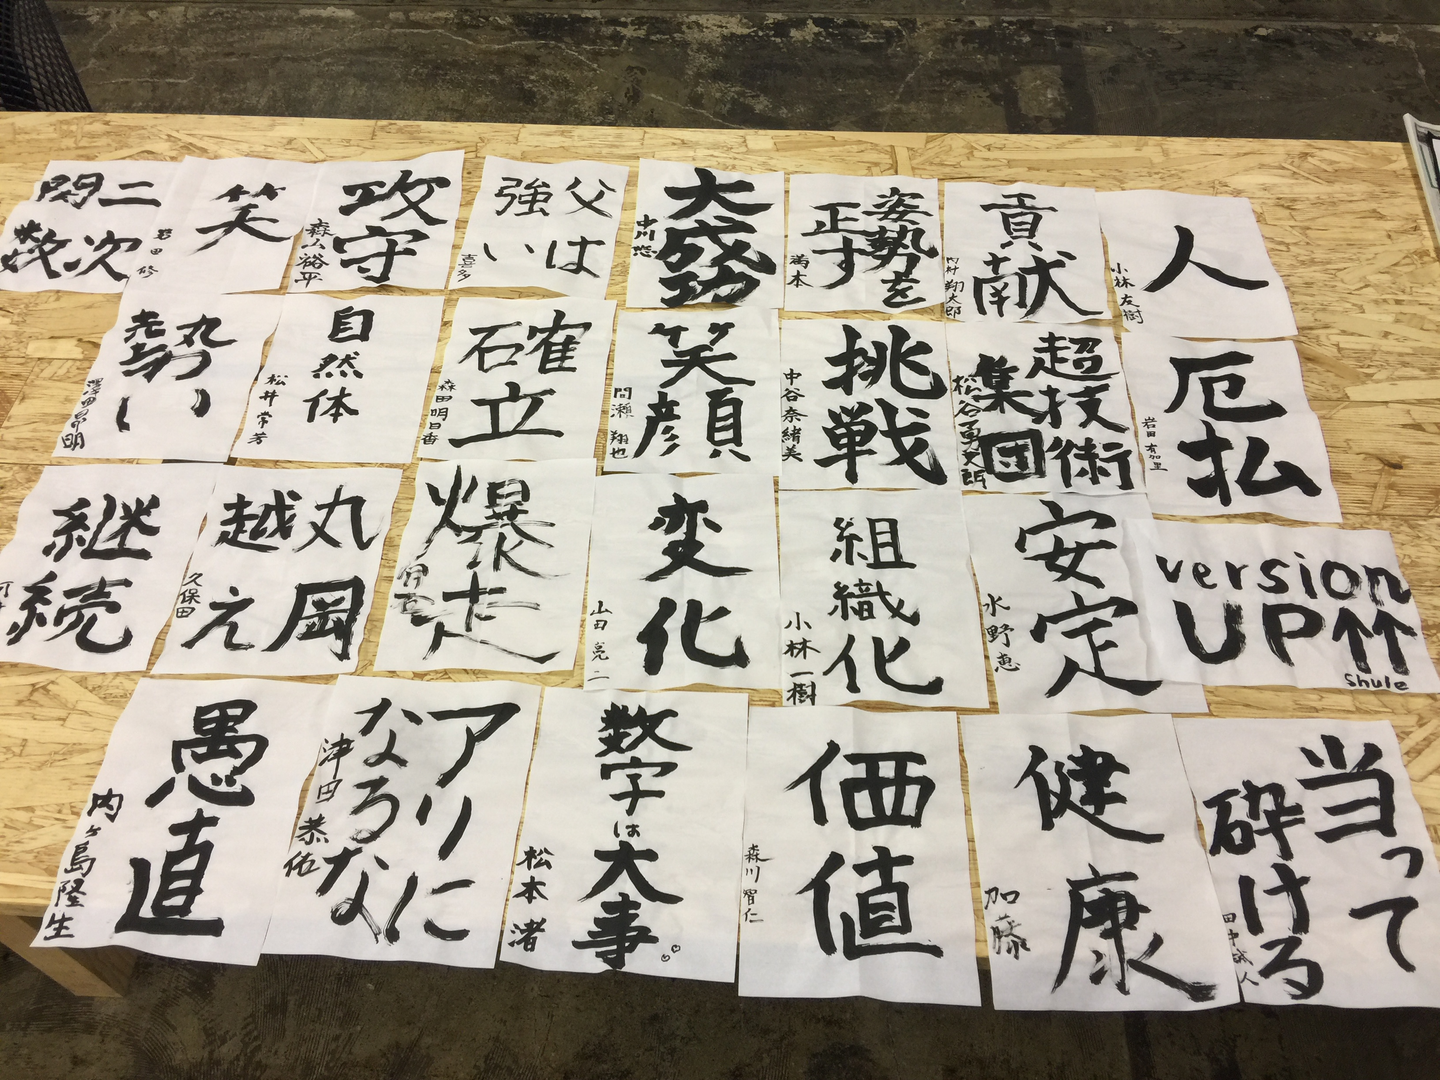 二次
関数
笑
岩田 修
攻守
森山裕平
父は
強い
喜多
大成功
中川 悠
姿勢を
正す
満本
貢献
内村 翔太郎
人
小林 友樹
熱い
自然体
松井 常芳
確立
森田 明日香
笑顔
間瀬 翔也
挑戦
中谷奈緒美
超技術
集団
松谷勇史朗
厄払
岩田 有加里
継続
丸岡
越え
久保田
爆走
変化
山田 亮二
組織化
小林 一樹
安定
水野 恵
version
UP↑↑
Shule
愚直
内ヶ島隆生
アリに
なろな
津田 恭佑
数字は大事。
松本 渚
価値
森川 智仁
健康
加藤
当って
砕けろ
田中誠人